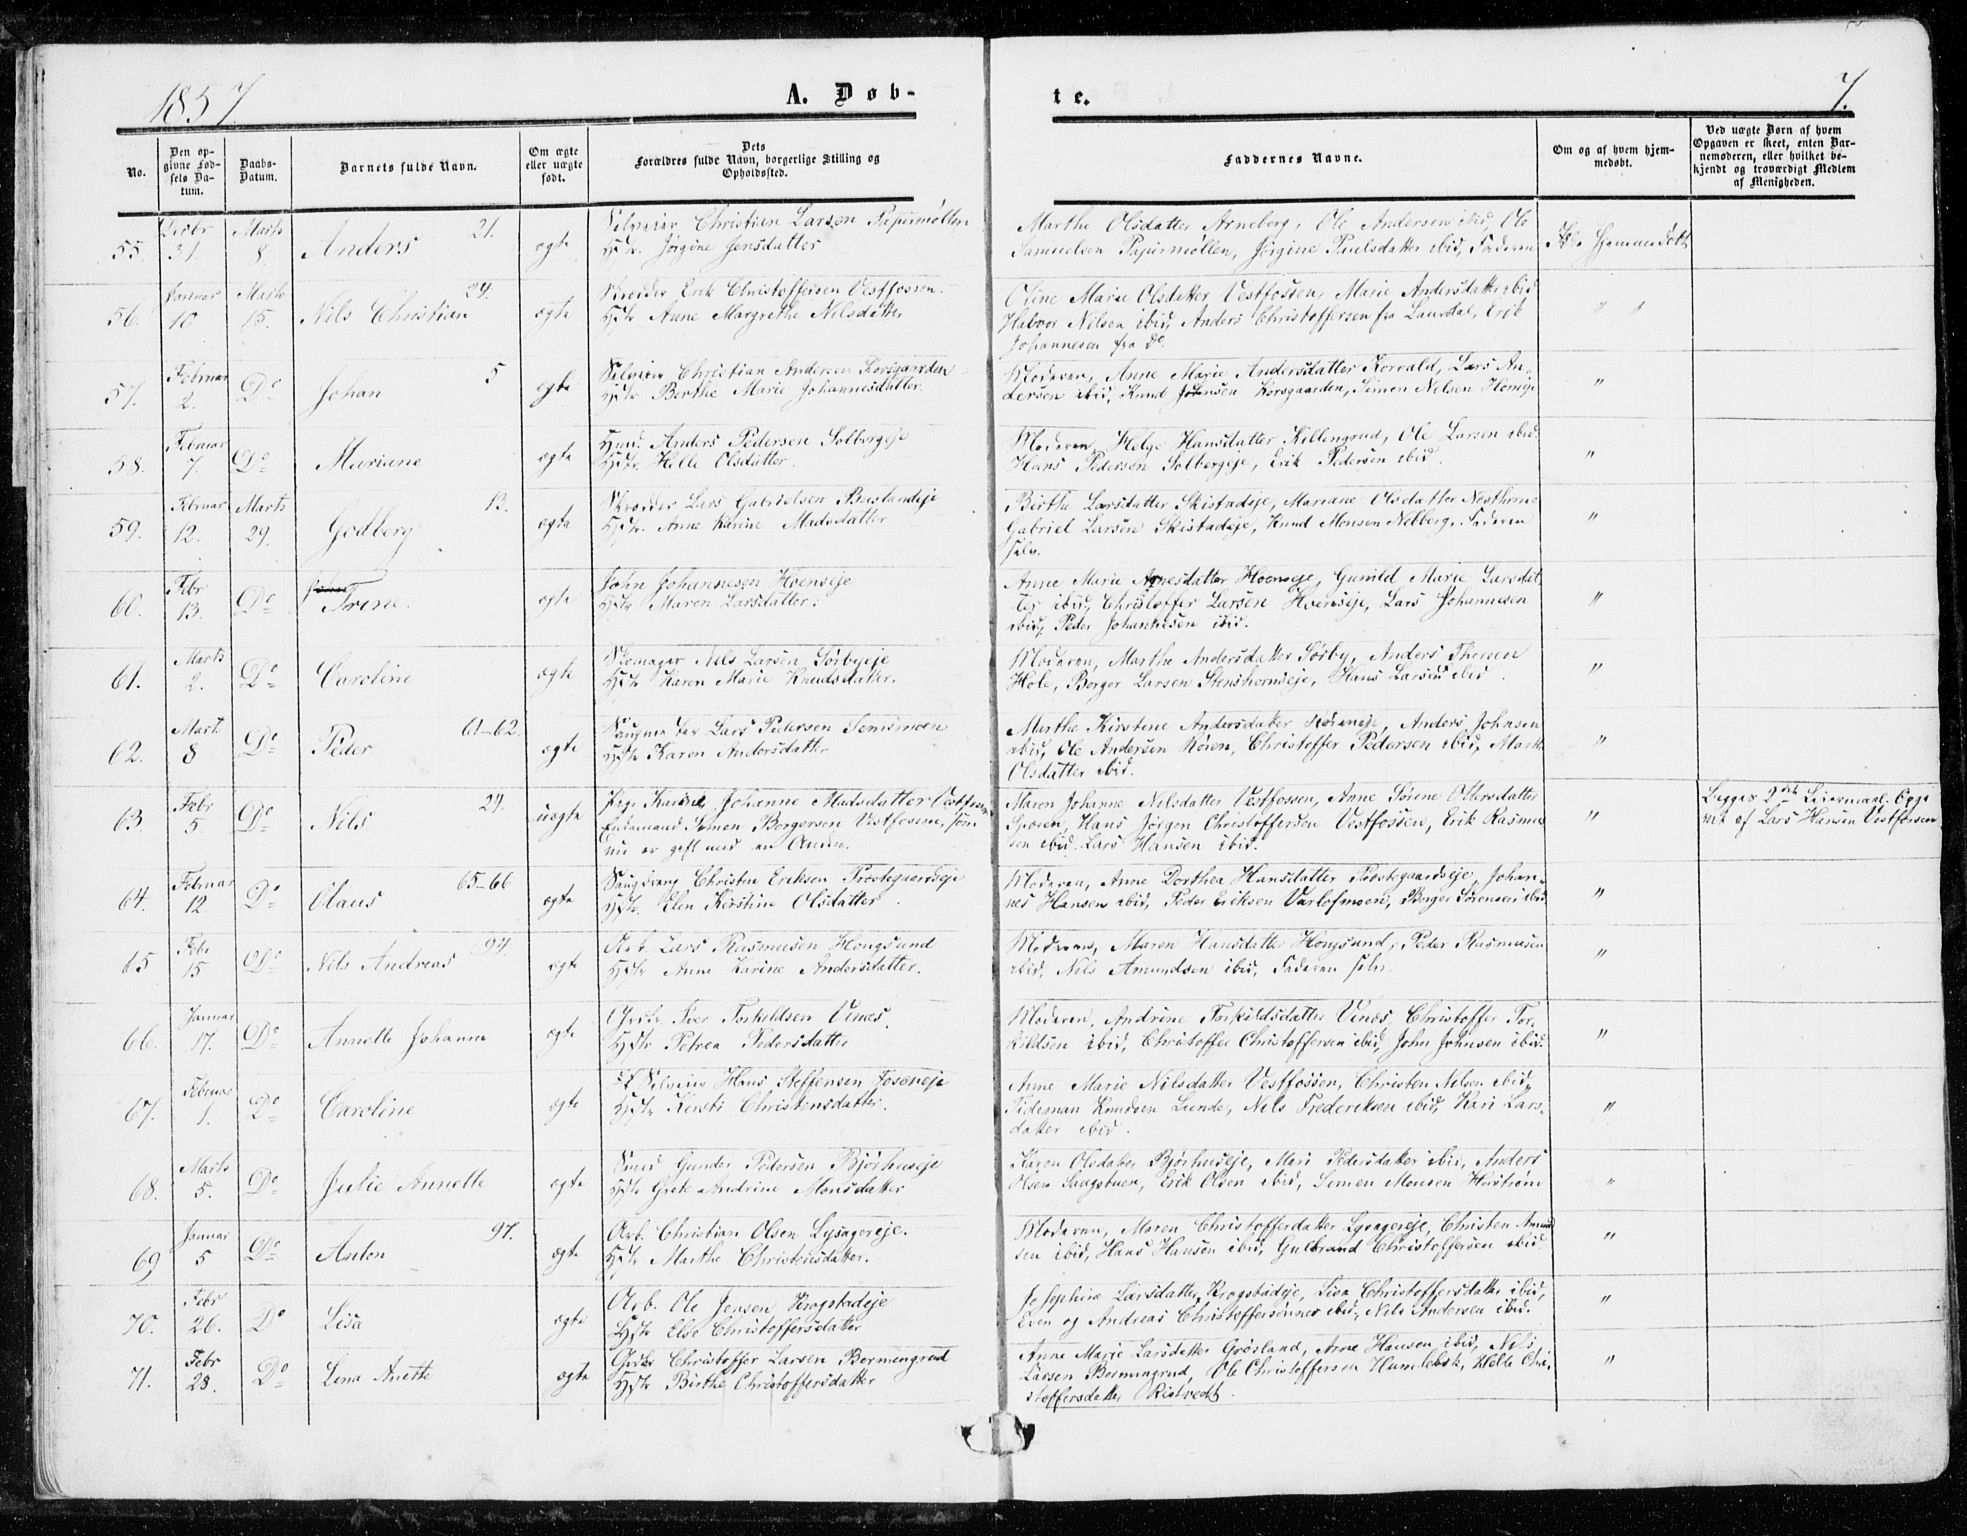 1857.
A. Døb-
te.
7.
No.
Den op-
givne Fød-
sels Da-
tum.
Daabs-
Datum.
Barnets fulde Navn.
Om ægte
eller uægte
født.
Dets
Forældres fulde Navn, borgerlige Stilling og
Opholdssted.
Faddernes Navne.
Om og af hvem hjem-
medøbt.
Ved uægte Børn af hvem
Opgaven er skeet, enten Bar-
nemoderen, eller hvilket be-
kjendt og troværdigt Medlem
af Menigheden.
55. Decbr 31. Marts 8. Anders 21. ægte
Christian Larsen Papirmøllen
Hstr. Jørgine Jensdatter
Marthe Olsdatter Arneberg, Ole Andersen ibid, Ole
Samuelsen Papirmøllen, Jørgine Paulsdatter ibid, Faderen
Ikke hjemmedøbt
56. Januar 10 Marts 15. Nils Christian 29. ægte
Skræder Erik Christoffersen Vestfossen.
Hstr Anne Margrethe Nilsdatter
Oline Marie Olsdatter Vestfossen, Marie Andersdatter ibid
Halvor Nilsen ibid, Anders Christoffersen fra Laurdal, Erik
Johannesen fra Do.
" "
57. Februar 2. Do Johan 5 ægte
Christian Andersen Korsgaarden
Hstr Berthe Marie Johannesdatter.
Moderen, Anne Marie Andersdatter Korvald, Lars An-
dersen ibid, Knud Jensen Korsgaarden, Simen Nilsen
"
58. Februar 7. Do Mariane ægte
Huusm. Anders Pedersen Solbergeje
Hstr. Helle Olsdatter.
Moderen, Helge Hansdatter Killengrud, Ole Larsen ibid.
Hans Pedersen Solbergeje, Erik Pedersen ibid.
"
59. Februar 12. Marts 29. Godberg 13. ægte
Skræder Lars Gabrielsen Buslandeje
Hstr. Anne Karine Madsdatter
Birthe Larsdatter Skistadeje, Mariane Olsdatter
Gabriel Larsen Skistadeje, Knud Monsen Nelberg, Faderen
selv.
"
60. Febr 13. Do Trine. ægte
John Johannesen Hoenseje
Hstr Maren Larsdatter.
Anne Marie Arnesdatter Hoenseje, Gunild Marie Larsdat
ter ibid, Christoffer Larsen Hoenseje, Lars Johannesen
ibid, Peder Johannesen ibid.
"
61. Marts 2. Do Caroline ægte
Skomager Nils Larsen Sørbyeje
Hstr Karen Marie Knudsdatter.
Moderen, Marthe Andersdatter Sørby, Anders Thersen
Hole, Borger Larsen Stenshorneje, Hans Larsen ibid.
"
62. Mart 8 Do Peder 61-62. ægte
Lars Pedersen Semsmoen
Hstr Karen Andersdatter
Marthe Kirstine Andersdatter, Anders Johnsen
ibid, Ole Andersen Røren, Christoffer Pedersen ibid, Marthe
Olsdatter ibid.
"
63. Febr 5. Do Nils 29. uægte
Pige Karine Johanne Madsdatter Vestfossen
Enkemand Simen Borgersen Vestfossen, som
nu er gift med en Anden.
Maren Johanne Nilsdatter Vestfossen, Anne Sørine Ottersdatter
Sporen, Hans Jørgen Christoffersen Vestfossen, Erik Rasmus
sen ibid. Lars Hansen ibid.
"
Begges 2det Leiermaal. Opgi
vet af Lars Hansen Vestfossen
64. Februar 12. Do Olaus 65-66 ægte
Christen Eriksen Prostegaardseje
Hstr. Elen Kirstine Olsdatter.
Moderen, Anne Dorthea Hansdatter Prostegaardseje, Johan-
nes Hansen ibid, Peder Eriksen Varlofmoen, Borger Sørensen ibid.
"
65 Febr 15 Do Nils Andreas 94. ægte
Arb Lars Rasmusen Hongsund
Hstr Anne Karine Andersdatter.
Moderen, Maren Hansdatter Hongsund, Peder Rasmusen
ibid, Nils Amundsen ibid, Faderen selv.
"
66. Januar 17. Do Annette Johanne ægte
Grdbr. Iver Torkildsen Vinæs.
Hstr Petrea Pedersdatter
Moderen, Andrine Torkildsdatter Vinæs, Christoffer Tor-
kildsen ibid, Christoffer Christoffersen ibid, John Johnsen ibid.
"
67. Februar 1. Do Caroline ægte
Hans Steffensen Foseneje
Hstr Kersti Christensdatter.
Anne Marie Nilsdatter Vestfossen, Christen Nilsen ibid,
Tideman Knudsen Lunde, Nils Frederiksen ibid, Kari Lars-
datter ibid.
"
68. Marts 5. Do Julie Annette ægte
Smed Gunder Pedersen Bjørhuseje
Hstr Grete Andrine Monsdatter
Karen Olsdatter Bjørhuseje, Mari Pedersdatter ibid, Anders
Olsen Saugstuen, Erik Olsen ibid, Simen Monsen Haistrøm
"
69 Januar 5 Do Anton 97. ægte
Arb. Christian Olsen Lysagereje.
Hstr Marthe Christensdatter.
Moderen, Maren Christofferdatter Lysagereje, Christen Amund
sen ibid, Hans Hansen ibid, Gulbrand Christoffersen ibid.
"
70. Febr 26. Do Lisa ægte
Arb. Ole Jensen Krogstadeje
Hstr Else Christoffersdatter
Josephine Larsdatter Krogstadeje, Lisa Christoffersdatter ibid,
Even og Andreas Christoffersønner ibid, Nils Andersen ibid.
"
71. Febr 28. Do Lena Anette ægte
Grdbr Christoffer Larsen Bermengrud
Hstr Birthe Christoffersdatter
Anne Marie Larsdatter Grøsland, Arne Hansen ibid, Nils
Larsen Bermengrud, Ole Christoffersen Humlebæk, Helle Chri-
stoffersdatter Ristvedt.
"